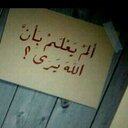 ألَمْ يَعْلَم بِأنَّ
اللهَ يَرَى ؟